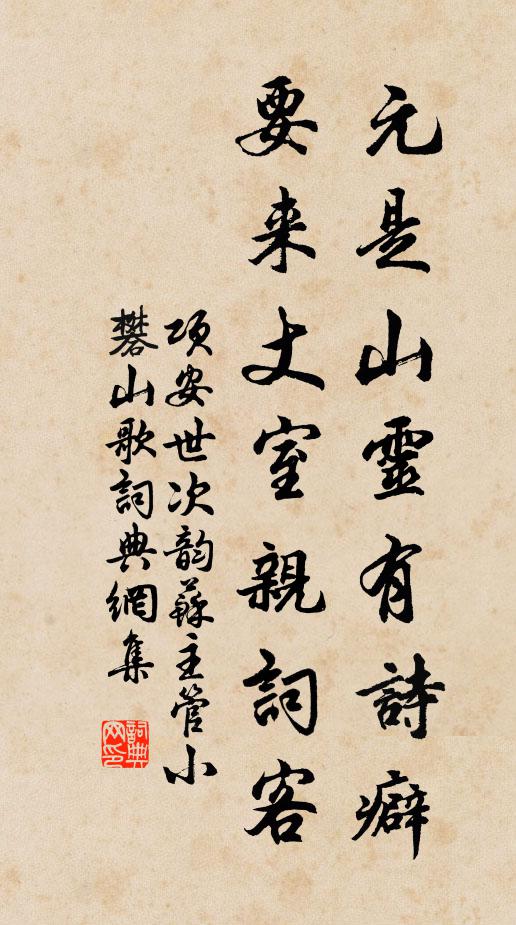 元是山靈有詩癖
要来丈室親詞客
项安世次韵蘇主管小
礬山歌詞典網集
詞典网印